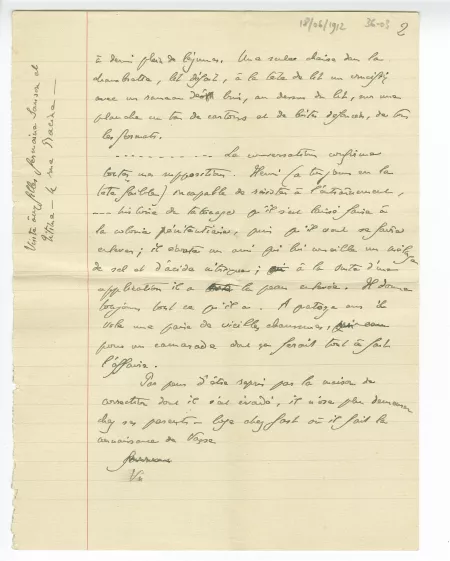 18/06/1912 36-03 2
à demi plein de légumes. Une seule chaise dans la
chambrette, lit défait, à la tête du lit un crucifix
avec un rameau de buis, au dessus du lit, sur une
planche un tas de cartons et de boîtes défoncés, de tous
les formats.
La conversation confirme
toutes mes suppositions. Henri (a toujours eu la
tête faible) incapable de résister à l'entraînement,
histoire de tatouages qu'il s'est laissé faire à
la colonie pénitentiaire, puis qu'il veut se faire
enlever; il écoute un ami qui lui conseille un mélange
de sel et d'acide citrique; à la suite d'une
application il a la peau enlevée. Il donne
toujours tout ce qu'il a. A partagé avec
une paire de vieilles chaussures,
pour un camarade dont ça ferait tout à fait
l'affaire.
Par peur d'être repris par la maison de
correction dont il s'est évadé, il n'ose plus demeurer
chez ses parents - loge chez où il fait la
connaissance de
Vu
Visite aux filles
- rue Racine -